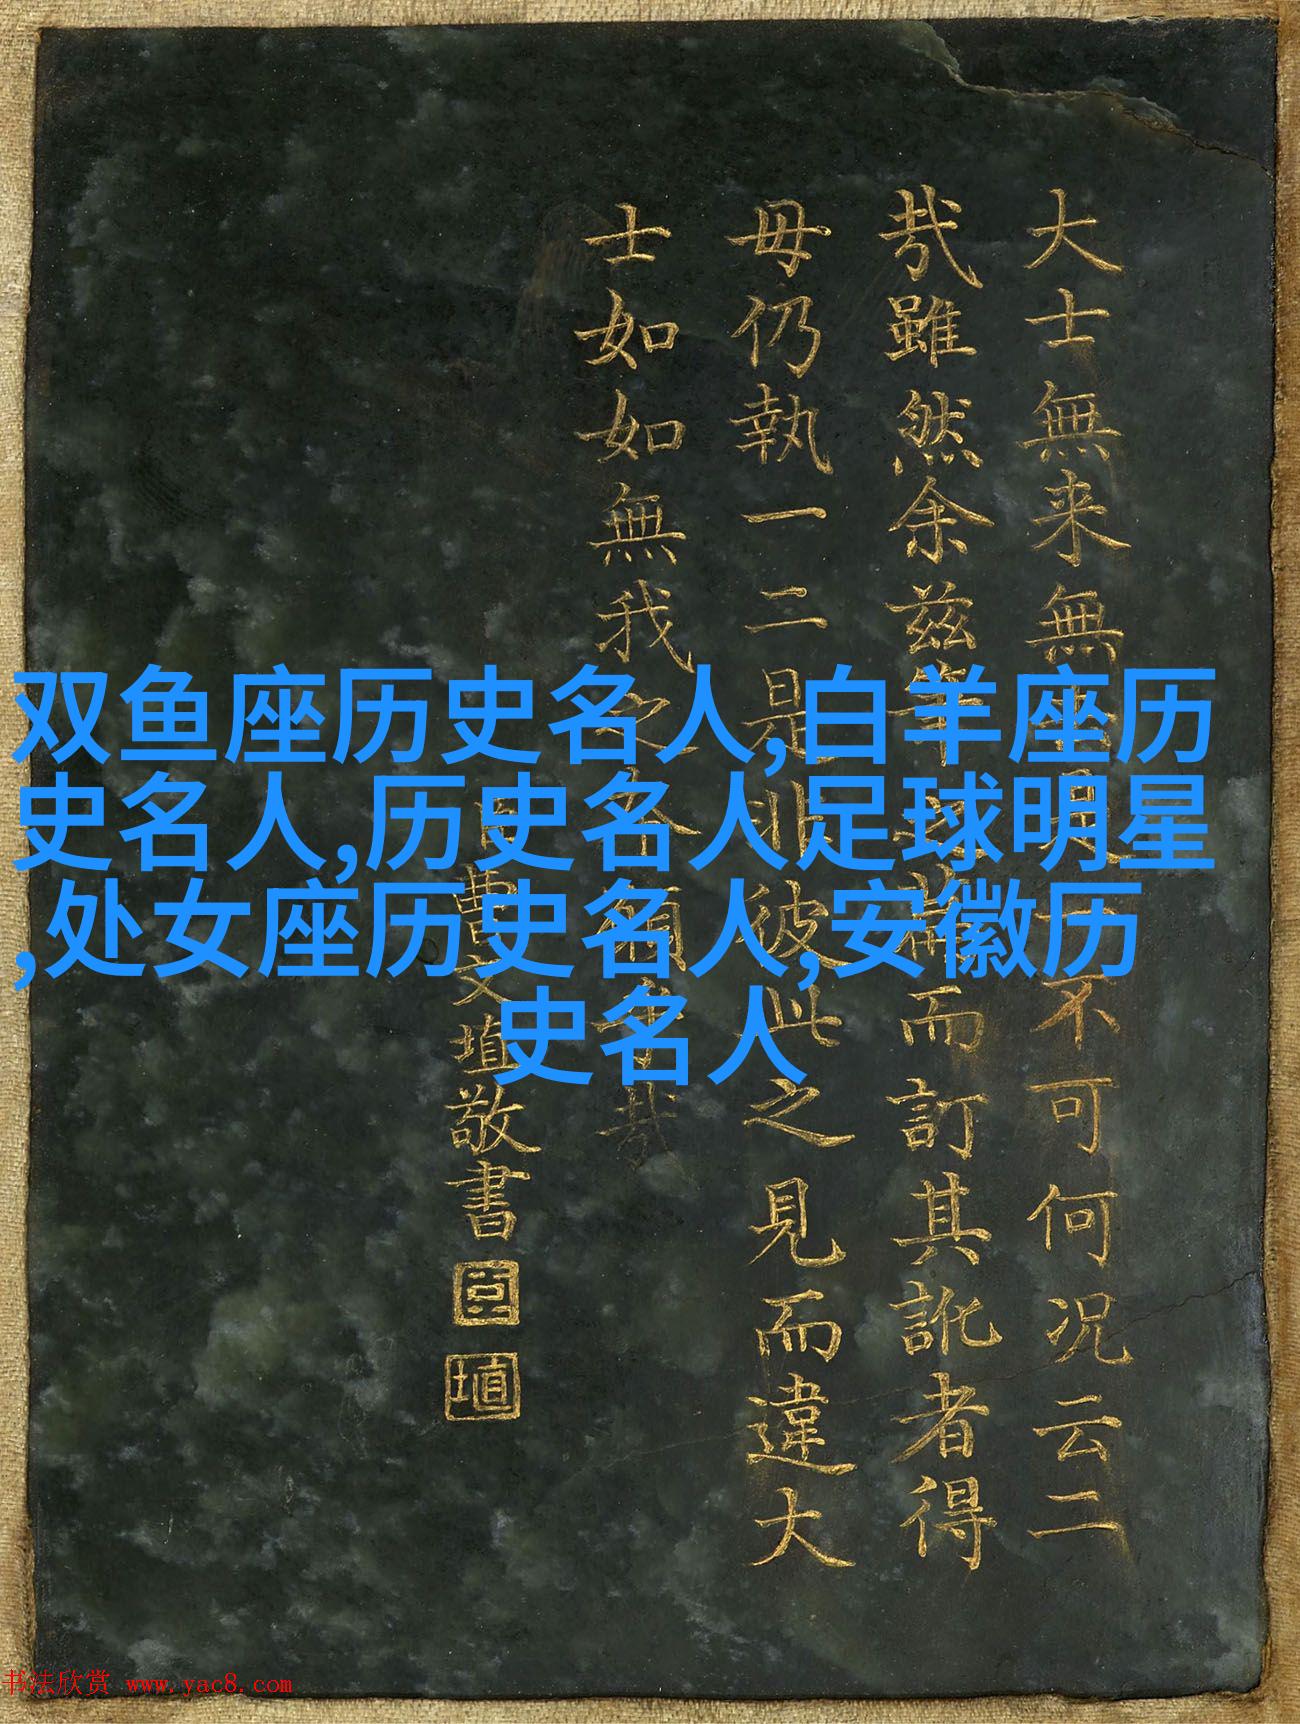 双鱼座历史名人,白羊座历
史名人,历史名人足球明星
,处女座历史名人,安徽历
史名人
大士無来無
不可何况云二
哉雖然余兹
而訂其訛者得
毋仍執一二是非彼此之見而違大
士如如無我之
哉
臣曹文埴敬書
臣
埴
书法欣赏 www.yac8.com